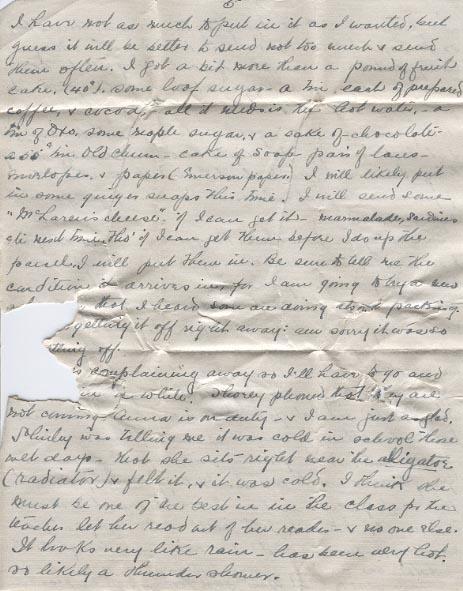 5
I have not as much to put in it as I wanted, but
guess it will be better to send not too much & send
them often. I got a bit more than a pound of fruit
cake, (40¢). some loaf sugar - a tin, each of prepared
coffee, & cocoa, & all it needs is the hot water, - a
tin of Oxo, some maple sugar, & a cake of chocolate -
tin Old Chum - cake of soap - pair of laces -
envelopes, & papers (Emerson paper. I will likely put
in some ginger snaps this time. I will send some
"McLaren's cheese" if I can get it - marmalade, sardines
etc next time, tho' if I can get them before I do up the
parcel, I will put them in. Be sure to tell me the
condition it arrives in, for I am going to try a
that I heard some are doing about packing.
getting it off right away: am sorry it was so
thing off.
is complaining away so I'll have to go and
in a while. Storey phoned that they are
not coming Anna is on duty - & I am just as glad.
Shirley was telling me it was cold in school these
wet days - that she sits right near the aligator
(radiator) & felt it, & it was cold. I think she
must be one of the best in in the class for the
teacher let her read out of her reader - & no one else.
It looks very like rain - has been very hot.
so likely a thunder shower.